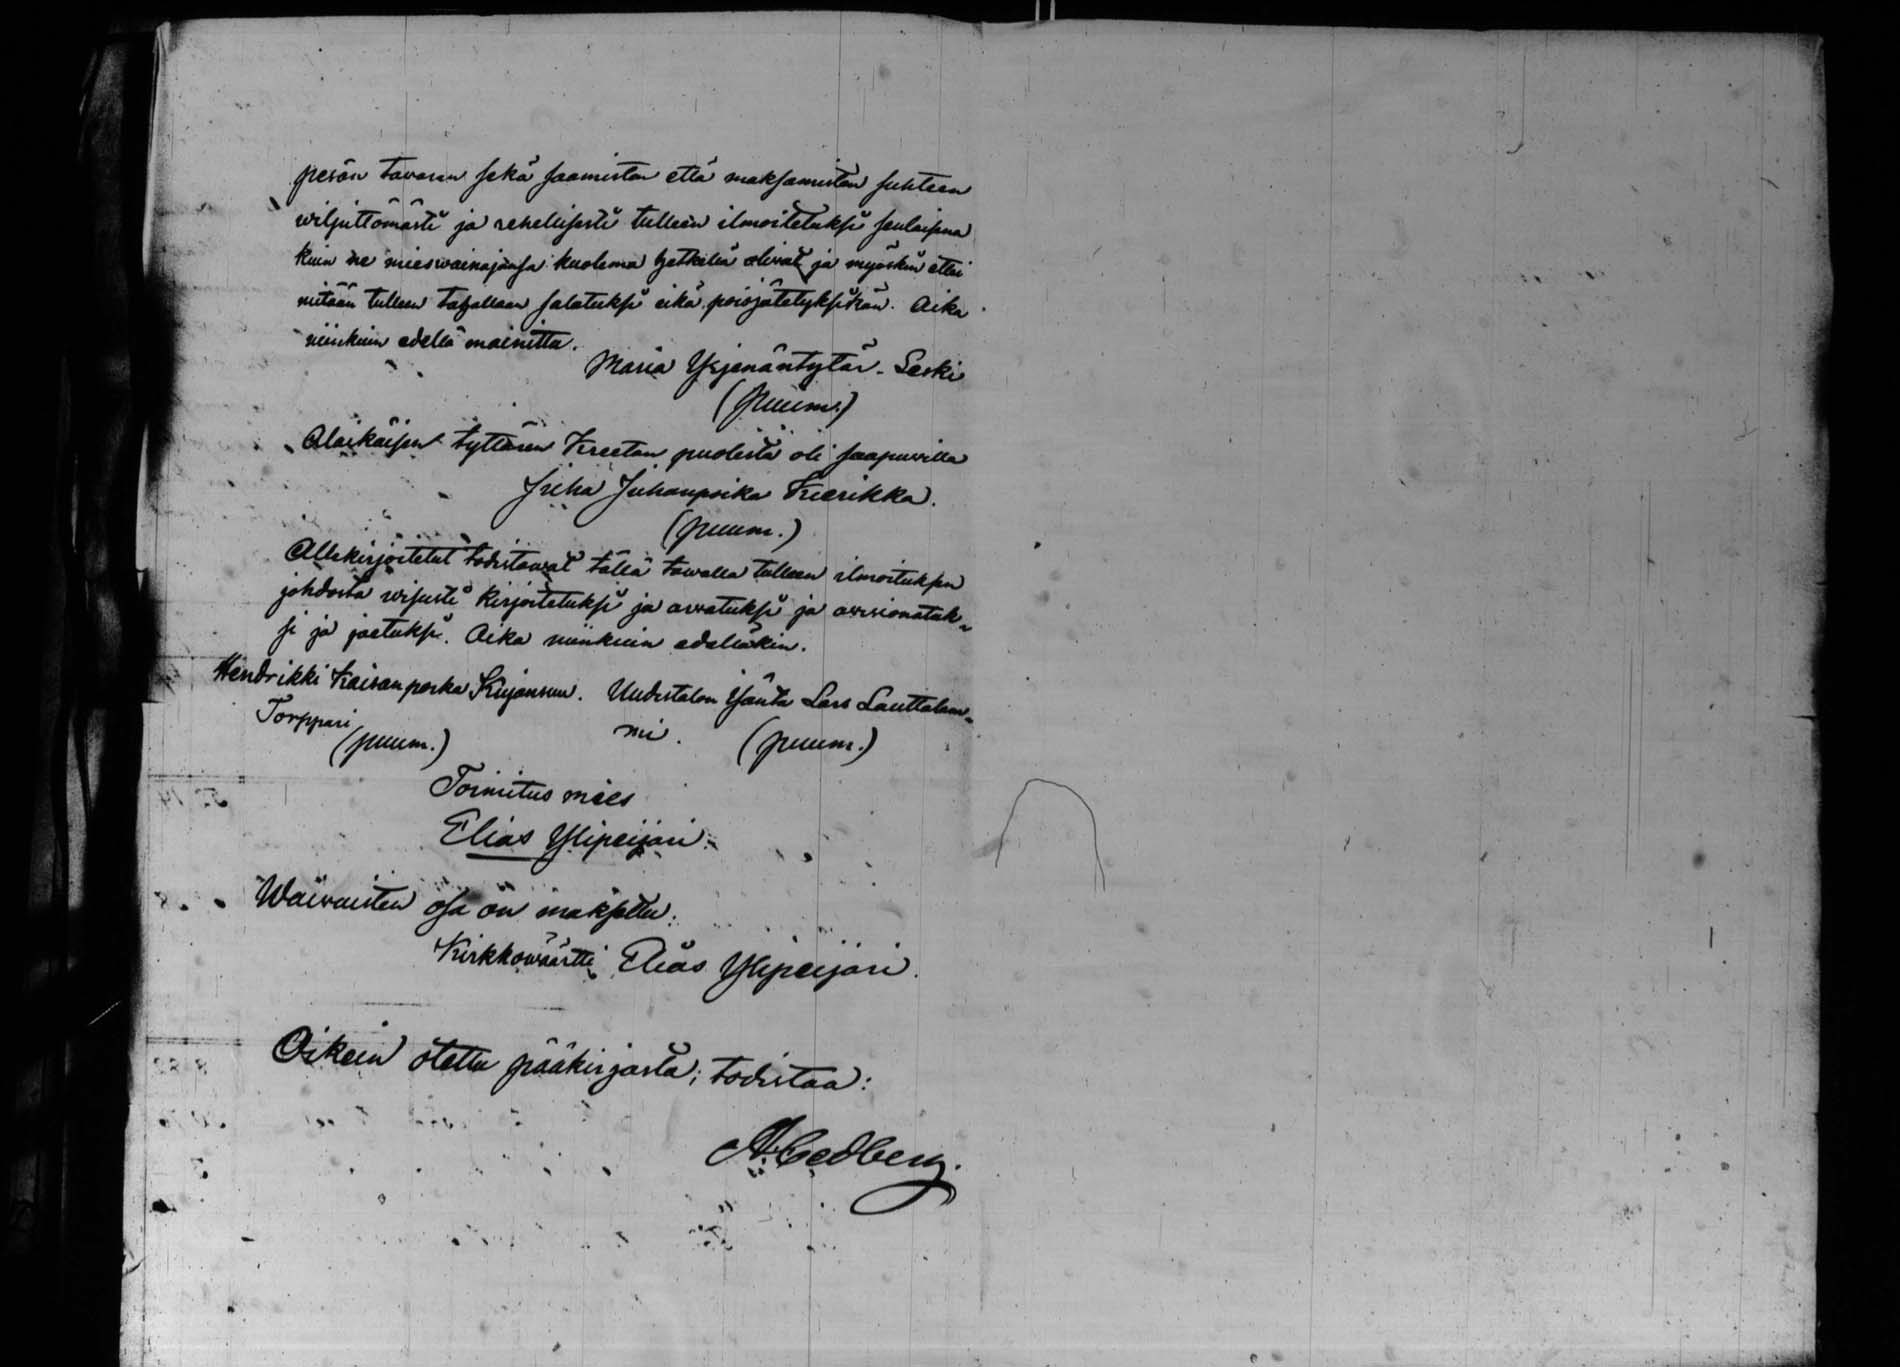 pesän tavaran sekä saamisten että maksamisten suhteen
wilpittömästi ja rehellisesti tulleen ilmoitetuksi senlaisena
kuin ne mieswainajansa kuolema hetkellä olivat ja myöskin ettei
mitään tulleen tahallaan salatuksi eikä poisjätetyksikään. Aika
niinkuin edellä mainittu.
Maria Yrjenäntytär. Leski
(puum.)
Alaikäisen tyttären Kreetan puolesta oli saapuvilla
Juha Juhanpoika Kierikka.
(puum.)
Allekirjoitetut todistawat tällä tawalla tulleen ilmoituksen
johdosta kirjoitetuksi ja arwatuksi ja
si ja jaetuksi. Aika niinkuin edelläkin.
Hendrikki Kaisanpoika Kujansuu. Uudistalon Isäntä Lars Lauttalam-
Torppari mi.
(puum.) (puum.)
Toimitus mies
Elias Ylipeijari.
Waiwaisten osa on maksettu.
Kirkkowäärtti Elias Ylipeijari.
Oikein otettu pääkirjasta; todistaa: